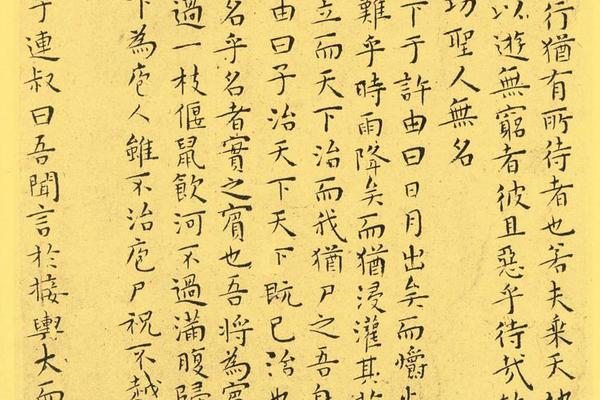 行猶有所待者也若夫乘天地
以遊無窮者彼且惡乎待哉故
功聖人無名
下于許由曰日月出矣而爝火
難乎時雨降矣而猶浸灌其於
立而天下治而我猶尸之吾自
由曰子治天下天下既已治也
名乎名者實之賓也吾將為賓
過一枝偃鼠飲河不過滿腹歸
下為庖人雖不治庖尸祝不越
于連叔曰吾聞言於接輿大而